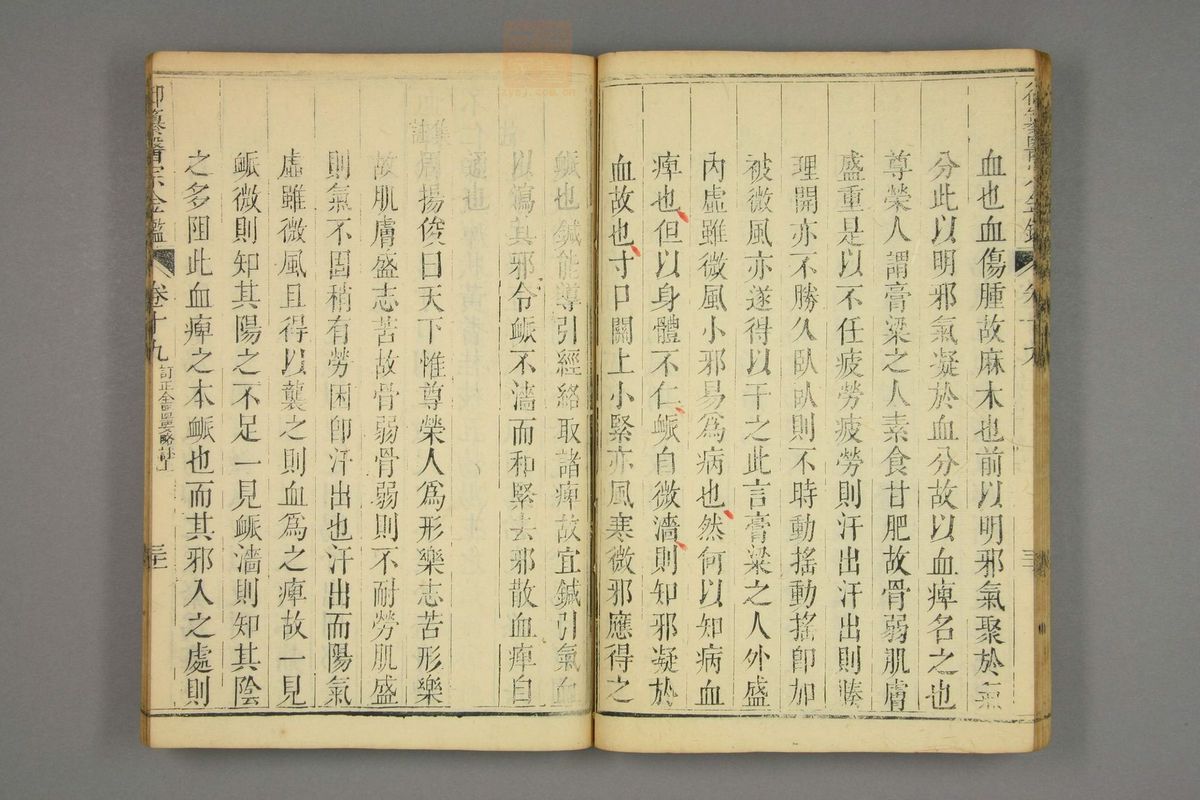 血也血傷腫故麻木也前以明邪氣聚於氣
分此以明邪氣凝於血分故以血痺名之也
尊榮人謂膏粱之人素食甘肥故骨弱肌膚
盛重是以不任疲勞疲勞則汗出汗出則腠
理開亦不勝久臥臥則不時動搖動搖即加
被微風亦遂得以干之此言膏粱之人外盛
內虛雖微風小邪易為病也然何以知病血
痺也但以身體不仁脈自微濇則知邪凝於
血故也寸口關上小緊亦風寒微邪應得之
脈也鍼能導引經絡取諸痺故宜鍼引氣血
以瀉其邪令脈不濇而和緊去邪散血痺自
通也
集註
周揚俊曰天下惟尊榮人為形樂志苦形樂
故肌膚盛志苦故骨弱骨弱則不耐勞肌盛
則氣不固稍有勞困即汗出也汗出而陽氣
虛雖微風且得以襲之則血為之痺故一見
脈微則知其陽之不足一見脈濇則知其陰
之多阻此血痺之本脈也而其邪入之處則
御纂醫宗金鑑 卷十九 訂正金匱要略註上